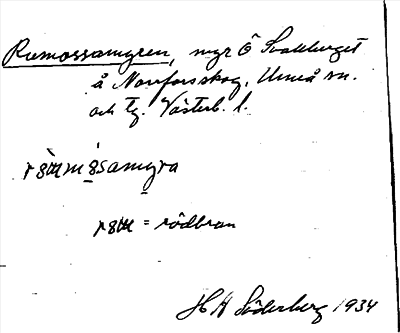 Rumossamyren, myr Ö Svaliberget
å Norrforsskog, Umeå sn.
och tg. Västerb. l.
mosamyra
= rödbrun
H A Söderberg 1934